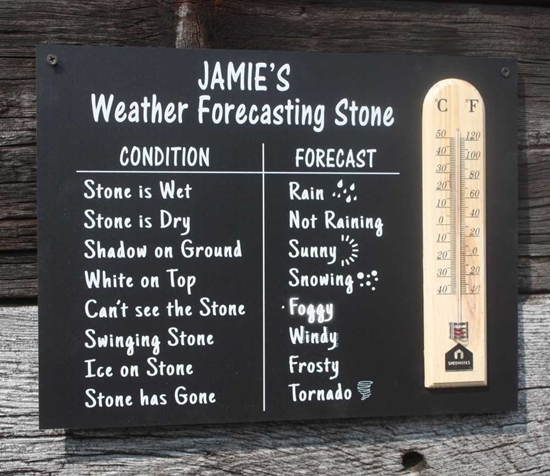 JAMIE'S
Weather Forecasting Stone
CONDITION FORECAST
Stone is Wet Rain
Stone is Dry Not Raining
Shadow on Ground Sunny
White on Top Snowing
Can't see the Stone Foggy
Swinging Stone Windy
Ice on Stone Frosty
Stone has Gone Tornado
°C °F
50 120
40 100
30 80
20 60
10 40
0 20
10 0
20
30 20
40 40